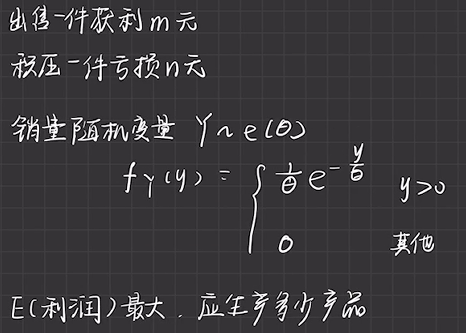 出售一件获利m元
积压一件亏损n元
销量随机变量 Y~e(θ)
f_Y(y) = { 1/θ e^{-y/θ} y>0
0 其他
E(利润)最大. 应生产多少产品